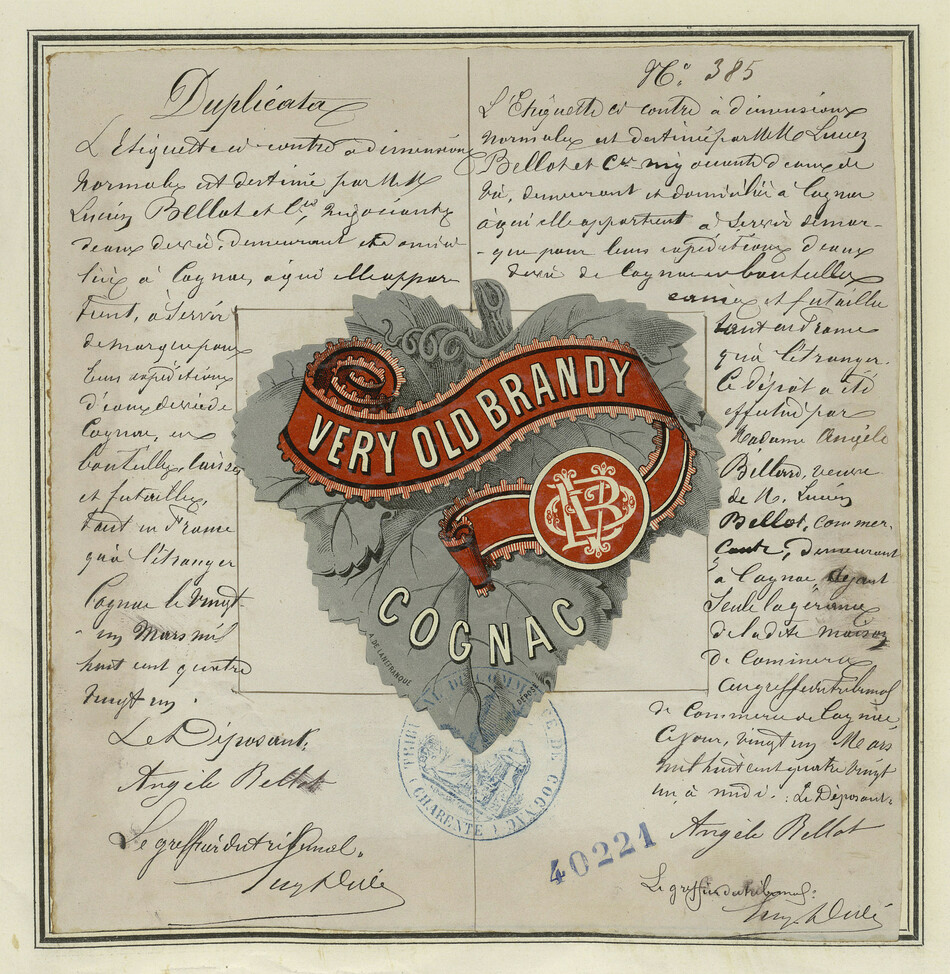 Duplicata
L'Etiquette ci contre à dimensions
normales est destiné par MM
Lucien Bellot et Cie Négociants
d'eaux de vie, demeurant et domici
liés à Cognac, à qui elle appar
tient, à servir
de marque pour
leurs expéditions
d'eaux de vie de
Cognac, en
bouteilles, caisses
et futailles,
tant en France
qu'à l'étranger
Cognac le vingt
un Mars mil
huit cent quatre
vingt un.
Le Déposant:
Angèle Bellot
Le greffier du tribunal.
No. 385
L'Etiquette ci contre à dimensions
normales est destiné par MM Lucien
Bellot et Cie négociants d'eaux de
vie, demeurant et domiciliés à Cognac
à qui elle appartient à servir de mar-
-que pour leurs expéditions d'eaux
de vie de Cognac en bouteilles
caisses et futailles
tant en France
qu'à l'étranger.
Ce dépôt a été
effectué par
Madame Angèle
Billard, veuve
de M. Lucien
Bellot, commer-
çante, demeurant
à Cognac, ayant
seule la gérance
de la dite maison
de commerce
au greffe du tribunal
de Commerce de Cognac,
Ce jour, vingt un Mars
mil huit cent quatre vingt
un à midi. Le Déposant:
Angèle Bellot
Le greffier du tribunal:
VERY OLD BRANDY
LB
COGNAC
A. DE LANEFRANQUE
DÉPOSÉ
TRIBUNAL DE COMMERCE DE COGNAC
(CHARENTE)
40221